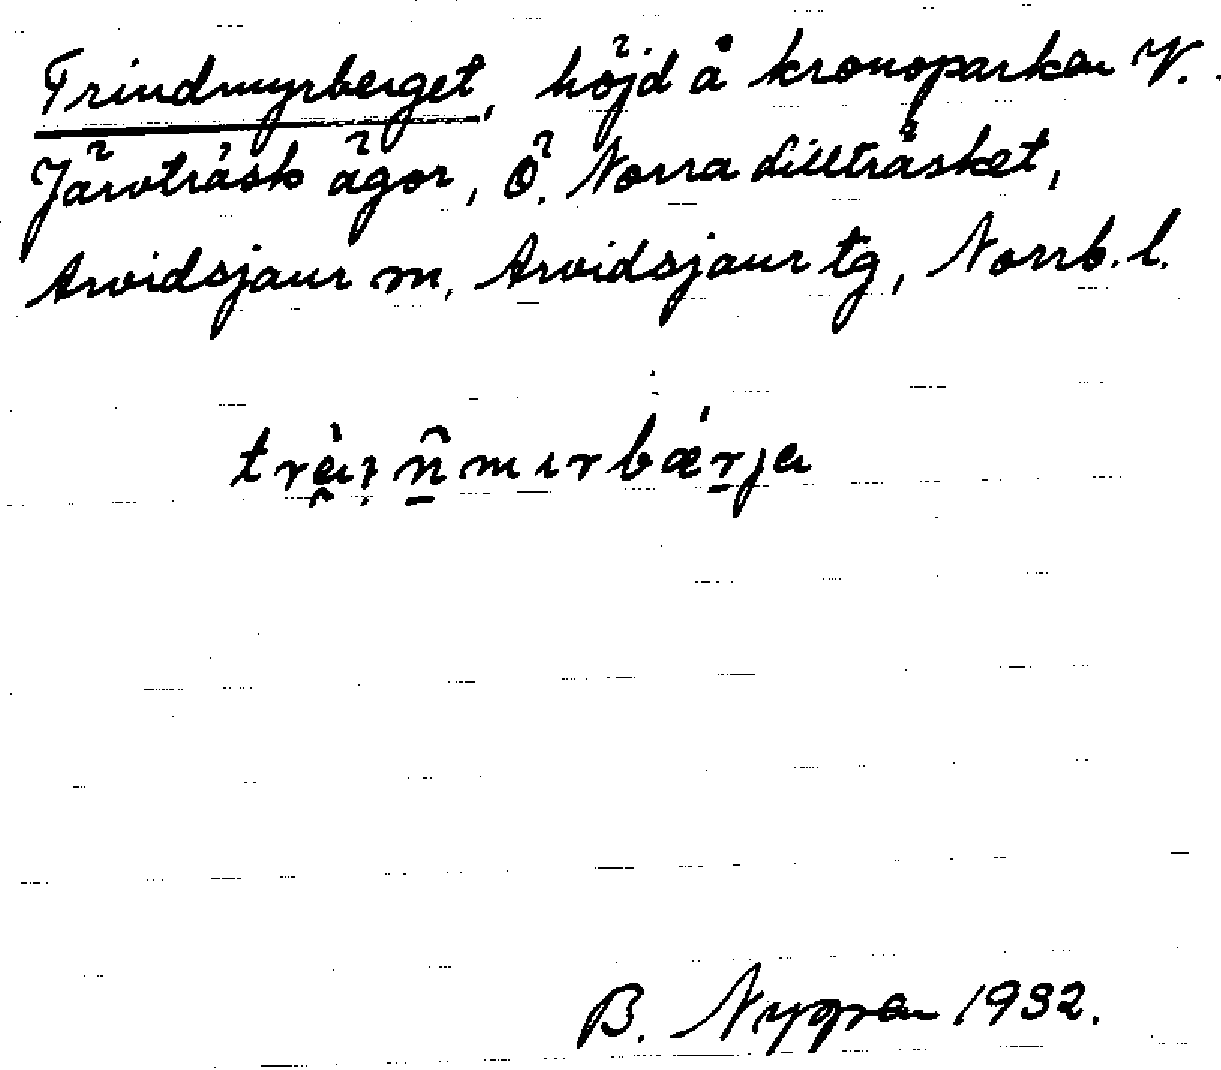 Trindmyrberget, höjd å kronoparken V.
Järvträsk ägor, Ö. Norra Lillträsket,
Arvidsjaur sn, Arvidsjaur tg, Norrb. l.
B. Nygren 1932.